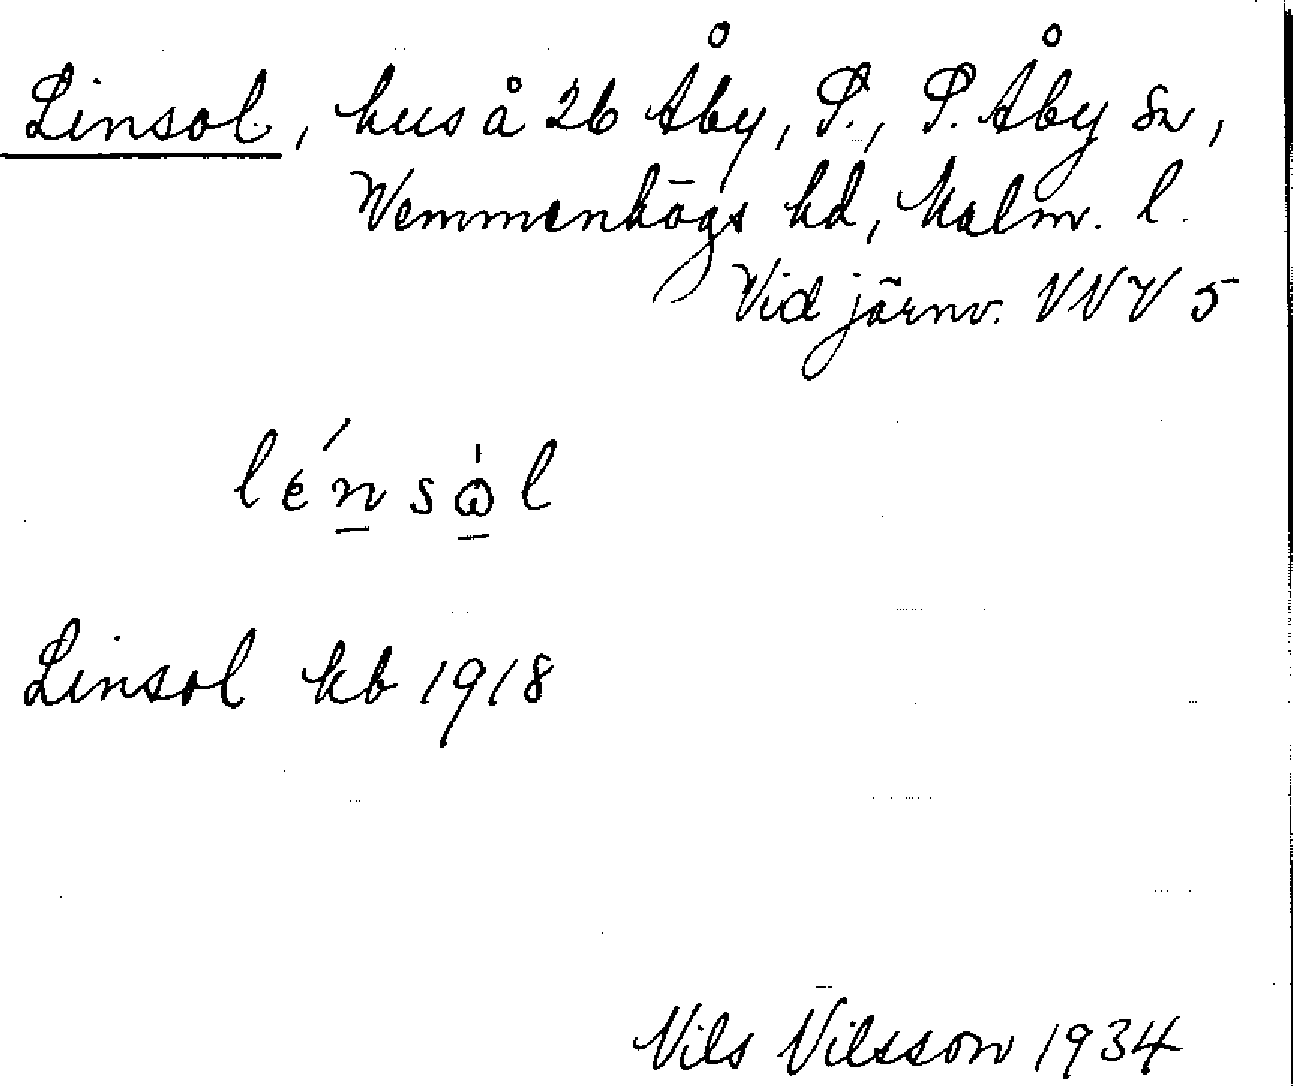 Linsol, hus å 26 Åby, S., S. Åby sn,
Vemmenhögs hd, Malm. l.
Vid järnv. VNV 5
lénsὼl
Linsol kb 1918
Nils Nilsson 1934